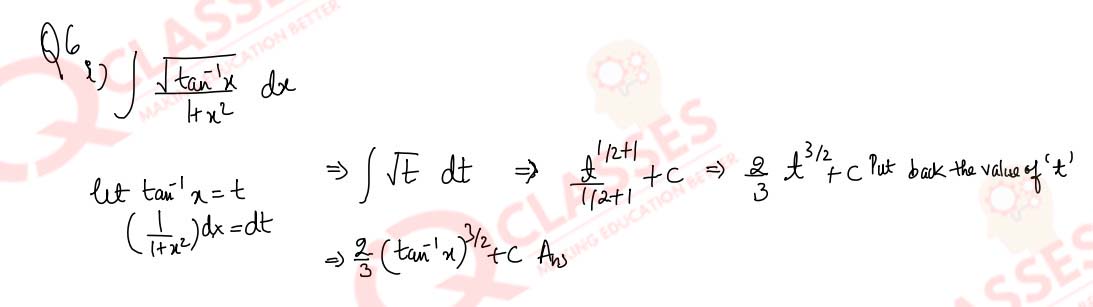 Q6
i) ∫ √(tan⁻¹x) / (1+x²) dx
let tan⁻¹x = t
(1/(1+x²))dx = dt
⇒ ∫ √t dt ⇒ t^(1/2+1) / (1/2+1) + c ⇒ 2/3 t^(3/2) + c Put back the value of 't'
⇒ 2/3 (tan⁻¹x)^(3/2) + c Ans
Q CLASSES
MAKING EDUCATION BETTER
Q CLASSES
MAKING EDUCATION BETTER
SSES